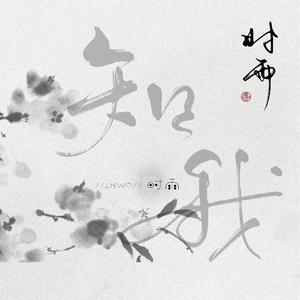 知我
时雨
//ZHIWO// 时雨